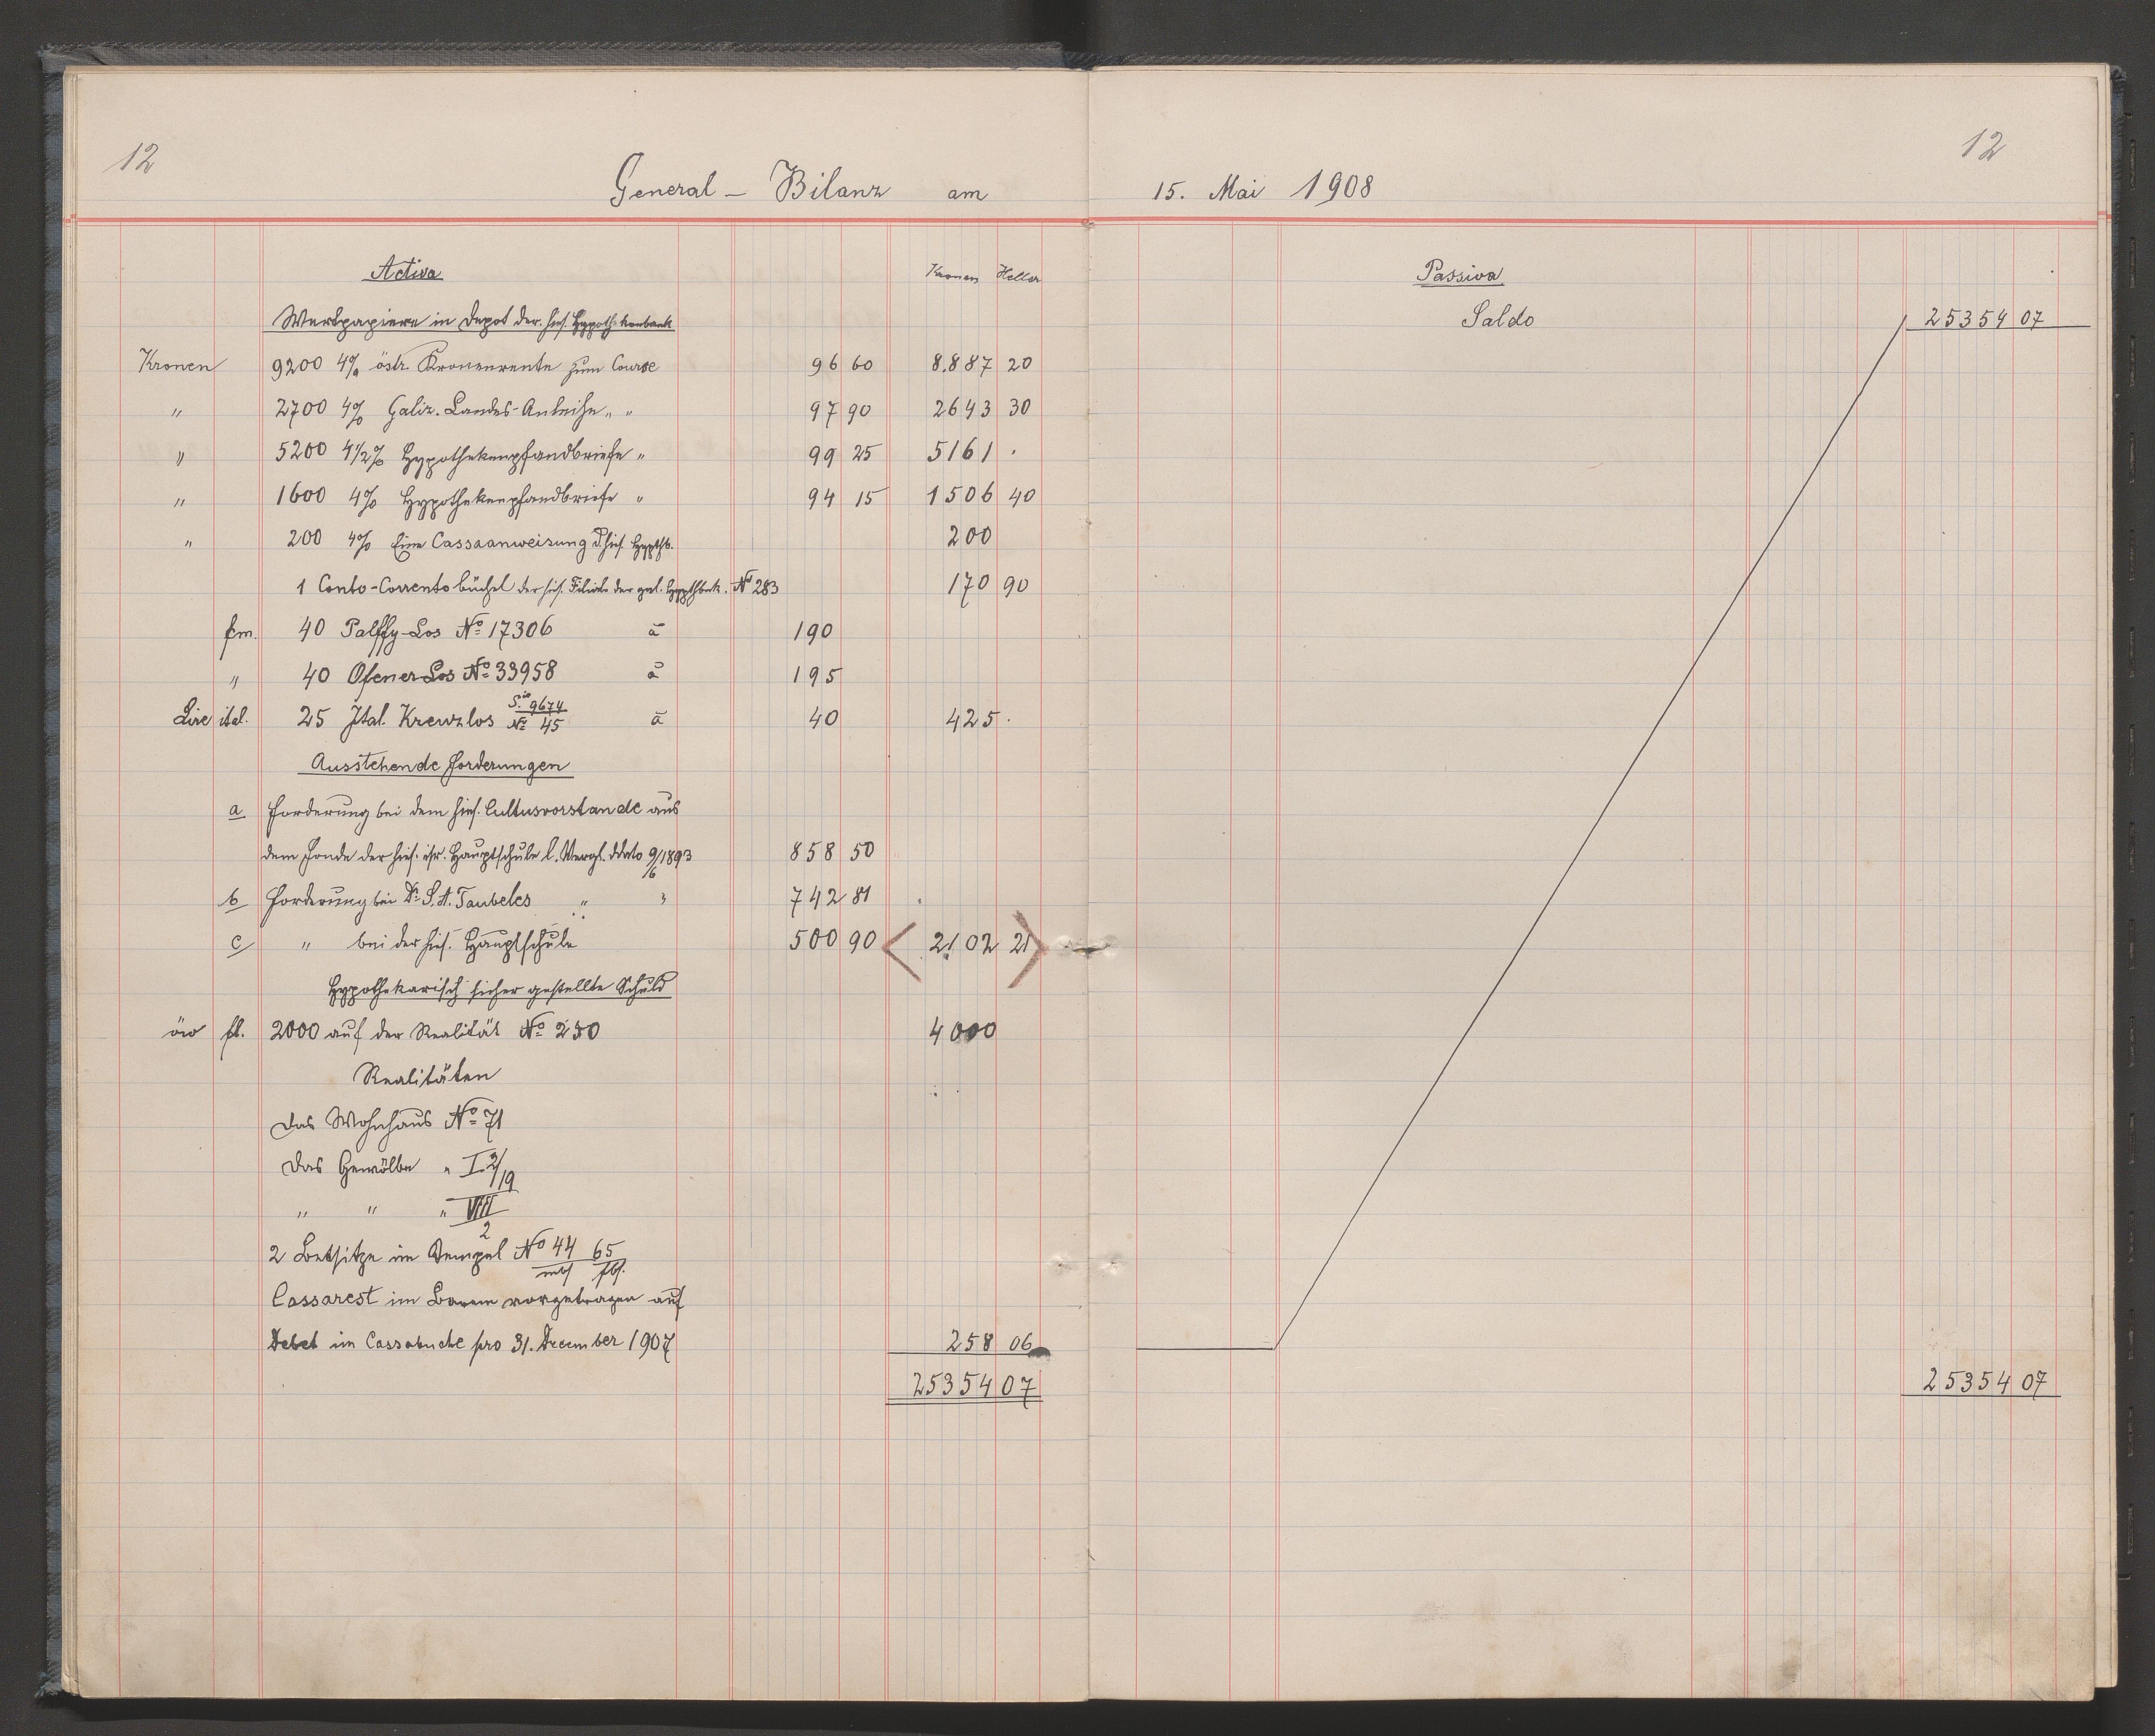 12
12
General - Bilanz am 15. Mai 1908
Activa Kronen Heller
Wertpapiere in Depot der hies. Hypothekenbank
Kronen 9200 4% östr. Kronenrente zum Course 96 60 8.887 20
" 2700 4% Galiz. Landes-Anleihe " " 97 90 2643 30
" 5200 4 1/2% Hypothekenpfandbriefe " 99 25 5161 .
" 1600 4% Hypothekenpfandbriefe " 94 15 1506 40
" 200 4% Eine Cassaanweisung d. hies. Hypthb. 200
1 Conto-Corrento büchel der hies. Filiale der gal. Hypthbnk. No 283 170 90
40 Palffy-Los No 17306 à 190
" 40 Ofener Los No 33958 à 195
Lire ital. 25 Ital. Kreuzlos S.ie 9674 No 45 à 40 425.
Ausstehende Forderungen
a Forderung bei dem hies. Cultusvorstande aus
dem Fonde der hies. isr. Hauptschule l. Vergl. ddato 9/6 1893 858 50
b Forderung bei Dr S. A. Taubeles " " 742 81
c " bei der hies. Hauptschule 500 90 < 2102 21 >
Hypothekarisch sicher gestellte Schuld
öw fl. 2000 auf der Realität No 230 4000
Realitäten
Das Wohnhaus No 71
Das Gewölbe " I 2/19
" " " VIII/2
2 Betsitze im Tempel No 44 65
Cassarest im Barem vorgetragen auf
Debet im Cassabuche pro 31. December 1907 258 06
25354 07
Passiva
Saldo 25354 07
25354 07